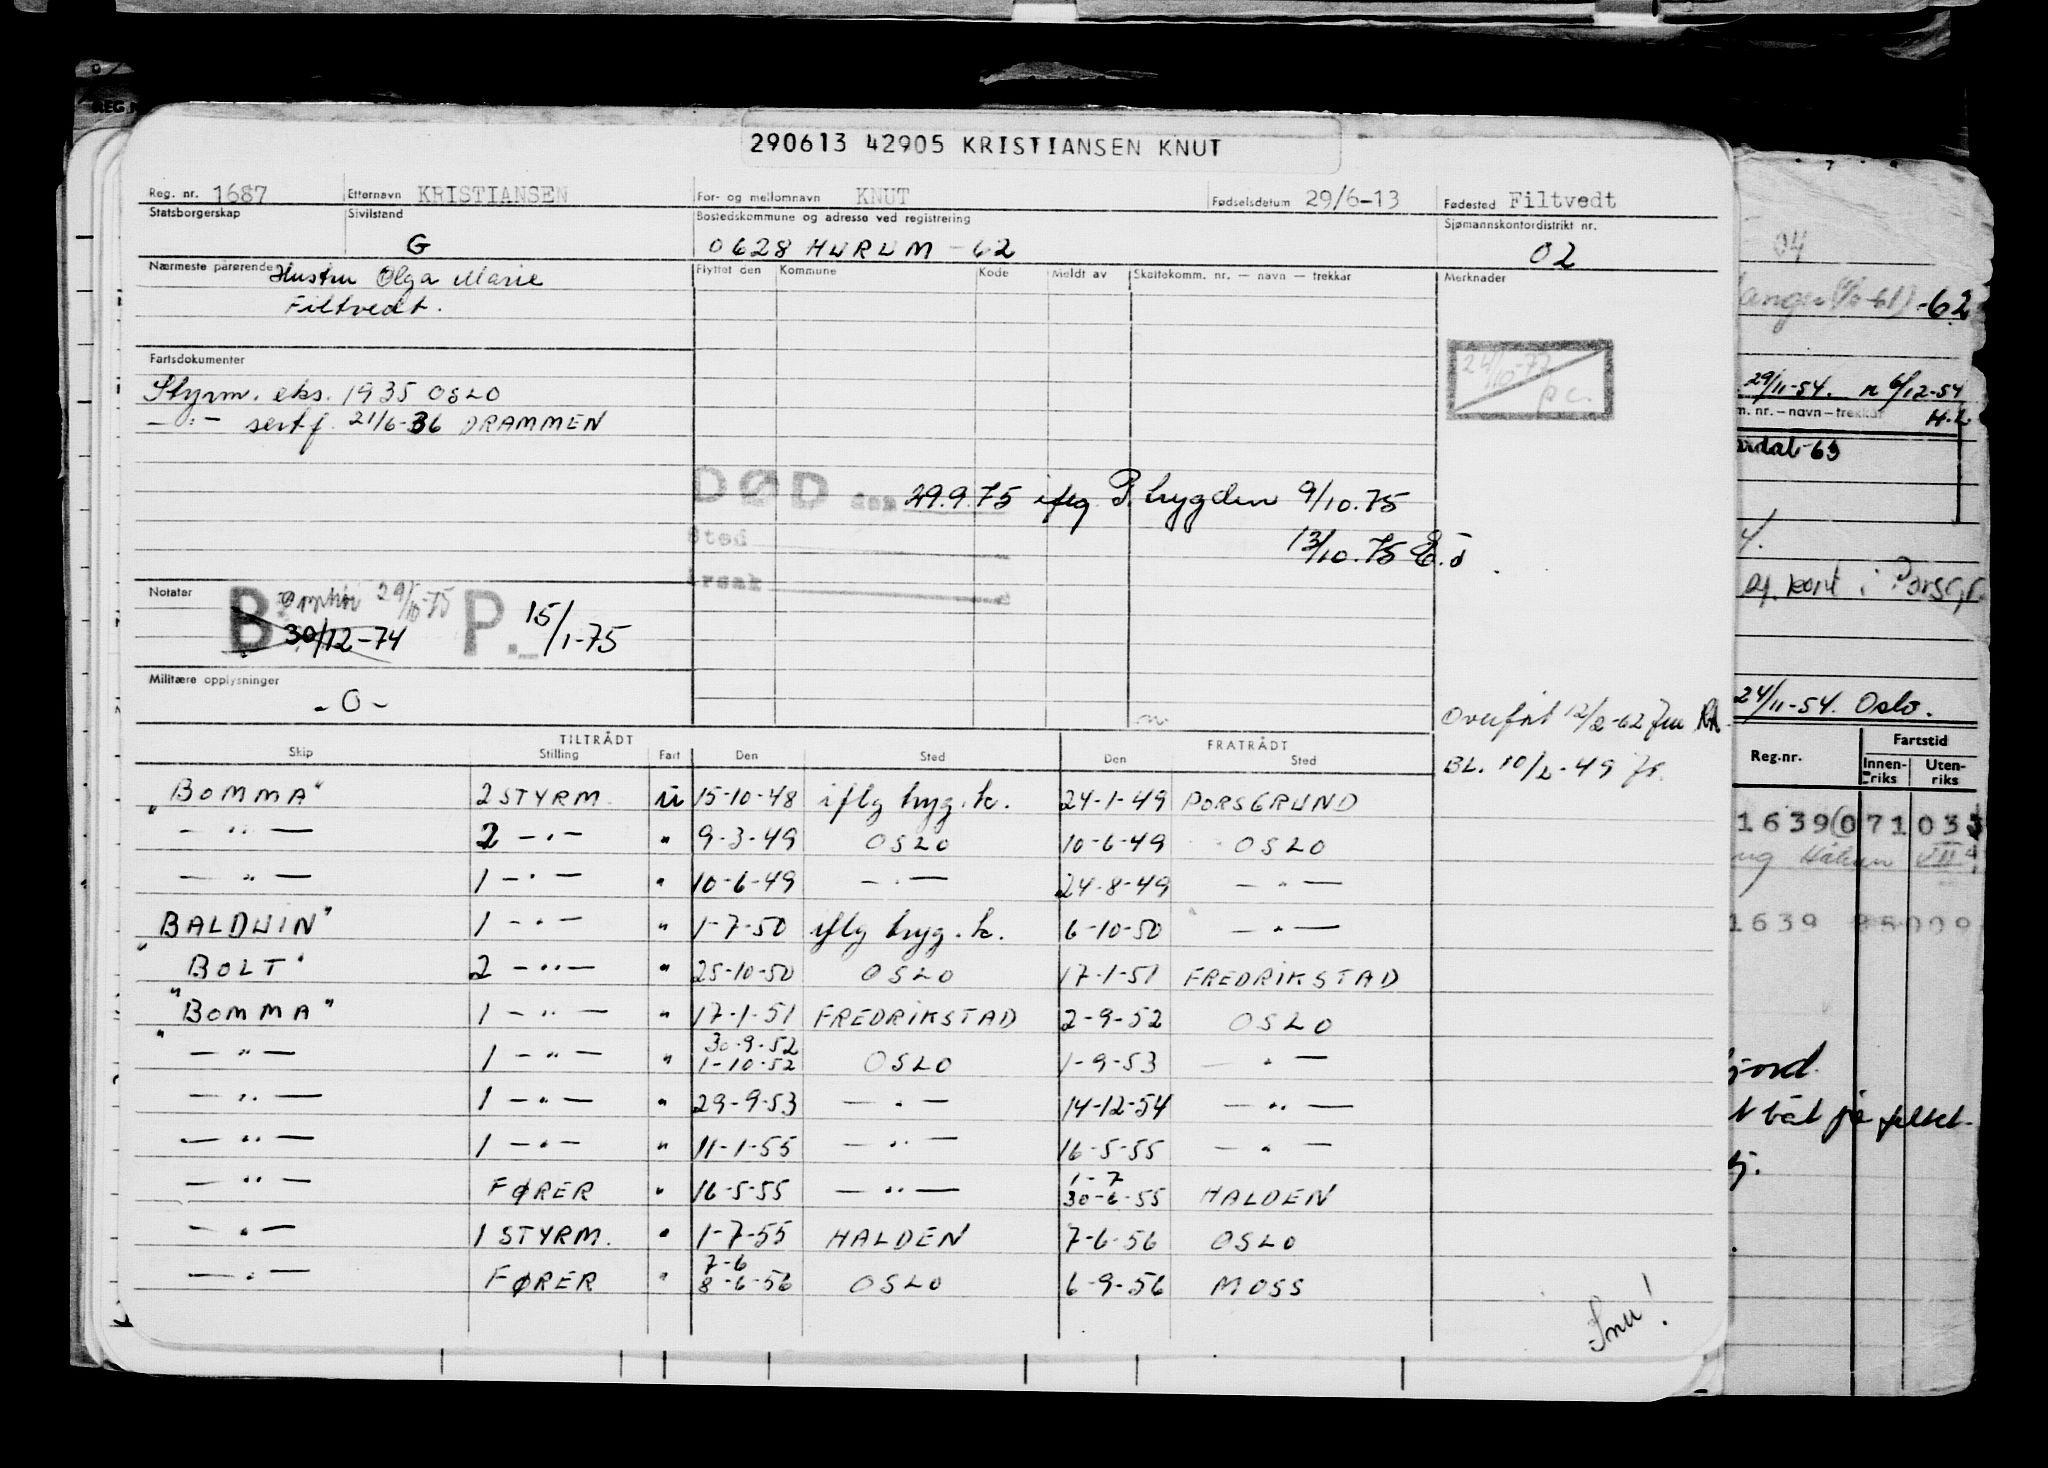 290613 42905 KRISTIANSEN KNUT
Reg. nr. 1687 Etternavn KRISTIANSEN For- og mellomnavn KNUT Fødselsdatum 29/6-13 Fødested Filtvedt
Statsborgerskap Sivilstand Bostedskommune og adresse ved registrering Sjømannskontordistrikt nr.
G 0628 HURUM - 62 02
Nærmeste pårørende Hustru Olga Marie Flyttet den Kommune Kode Meldt av Skattekomm. nr. — navn — trekkar Merknader
Filtvedt.
24/10-72
p.c.
Fartsdokumenter
Styrm. eks. 1935 OSLO
— " — sertf. 21/6-36 DRAMMEN
DØD den 29.9.75 iflg P. trygden 9/10.75
Sted 13/10.75
Årsak
Notater B 29/10-75 P. 15/1-75
30/12-74
Militære opplysninger
- O -
Overført 12/2-62
BL. 10/2-49
TILTRÅDT FRATRÅDT
Skip Stilling Fart Den Sted Den Sted
"BOMMA" 2 STYRM. u 15-10-48 iflg tryg.k. 24-1-49 PORSGRUND
— " — 2 — " — " 9-3-49 OSLO 10-6-49 OSLO
— " — 1 — " — " 10-6-49 — " — 24-8-49 — " —
"BALDUIN" 1 — " — " 1-7-50 iflg tryg.k. 6-10-50 — " —
"BOLT" 2 — " — " 25-10-50 OSLO 17-1-51 FREDRIKSTAD
"BOMMA" 1 — " — " 17-1-51 FREDRIKSTAD 2-9-52 OSLO
30-9-52
— " — 1 — " — " 1-10-52 OSLO 1-9-53 — " —
— " — 1 — " — " 29-9-53 — " — 14-12-54 — " —
— " — 1 — " — " 11-1-55 — " — 16-5-55 — " —
1-7
— " — FØRER " 16-5-55 — " — 30-6-55 HALDEN
— " — 1 STYRM. " 1-7-55 HALDEN 7-6-56 OSLO
7-6
— " — FØRER " 8-6-56 OSLO 6-9-56 MOSS
Snu!
04
-62
29/11-54. n 6/12-54
m. nr. — navn — trekkår H.L
ardal-63
kort i Porsgr.
24/11-54. Oslo.
Reg.nr. Fartstid
Innen-riks Uten-riks
1639 071033
1639 95009
fjord.
t båt på feltet.